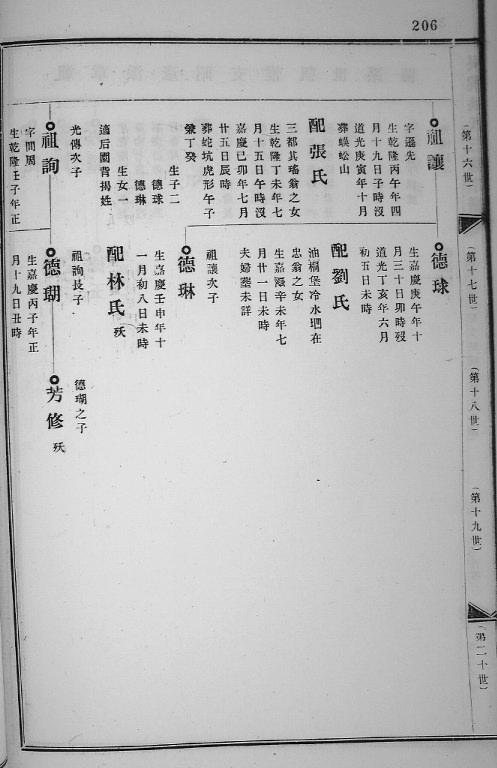 206
（第十六世）
（第十七世）
（第十八世）
（第十九世）
（第二十世）
祖讓
字遜先
生乾隆丙午年四
月十九日子時沒
道光庚寅年十月
葬蜈蚣山
配張氏
三都其瑤翁之女
生乾隆丁未年七
月十五日午時沒
嘉慶己卯年七月
廿五日辰時
葬蛇坑虎形午子
兼丁癸
生子二
德球
德琳
生女一
適后園背楊姓
德球
生嘉慶庚午年十
月三十日卯時歿
道光丁亥年六月
初五日未時
配劉氏
油桐堡冷水坦在
忠翁之女
生嘉慶辛未年七
月廿一日未時
夫婦塋未詳
祖讓次子
德琳
生嘉慶壬申年十
一月初八日未時
配林氏 殀
祖詢
光傳次子
字間周
生乾隆壬子年正
祖詢長子
德瑚
生嘉慶丙子年正
月十九日丑時
德瑚之子
芳修 殀